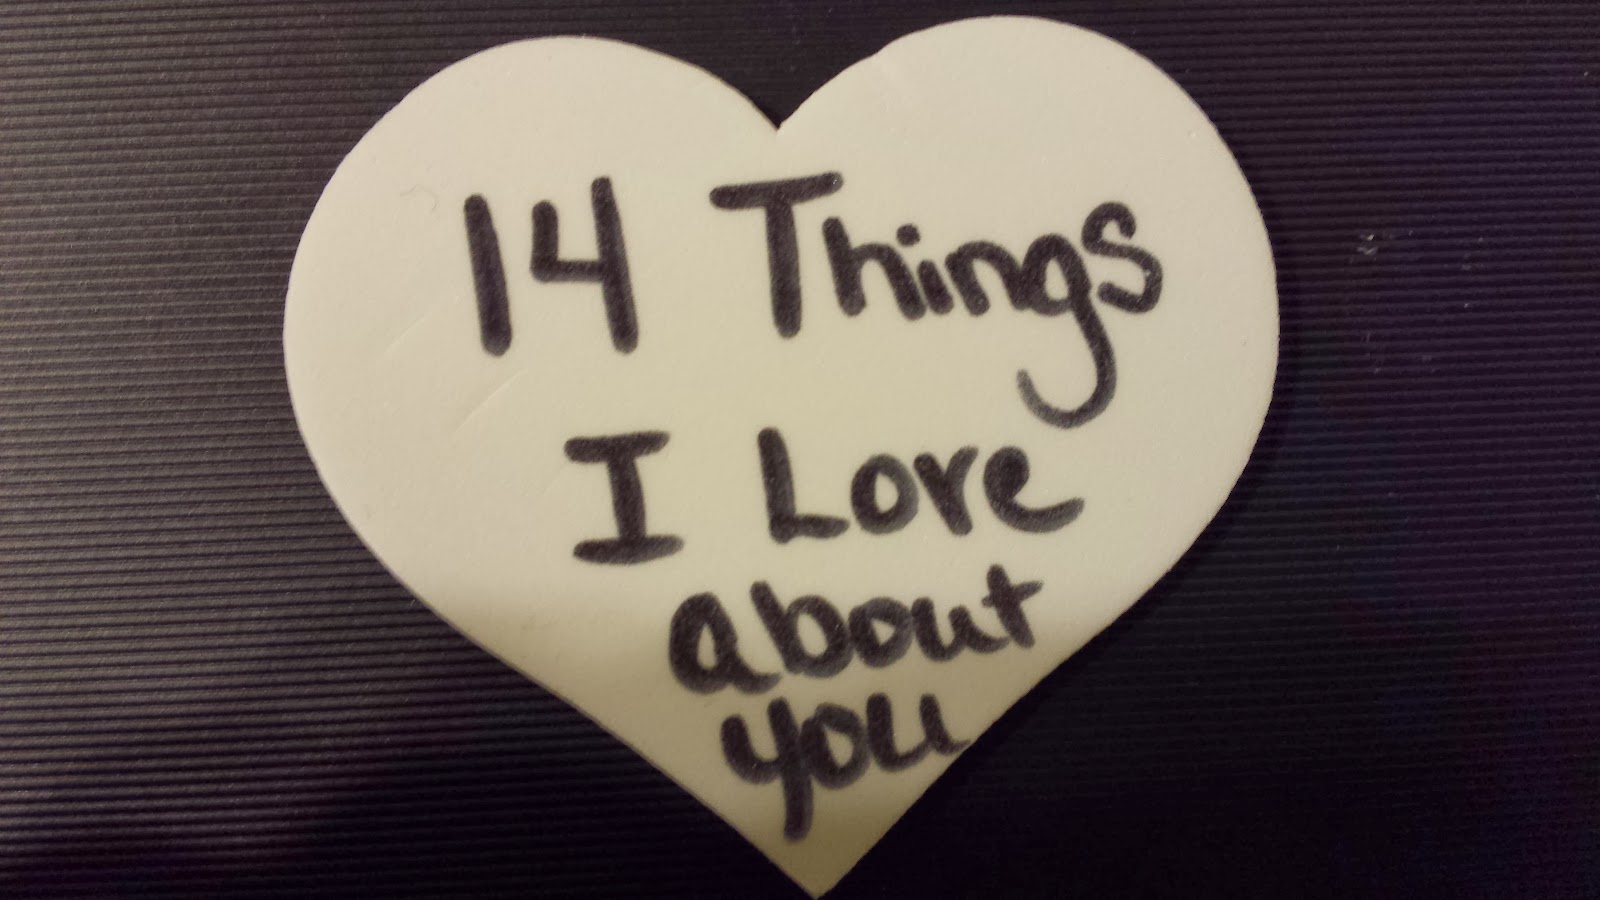 14 Things
I Love
about
you